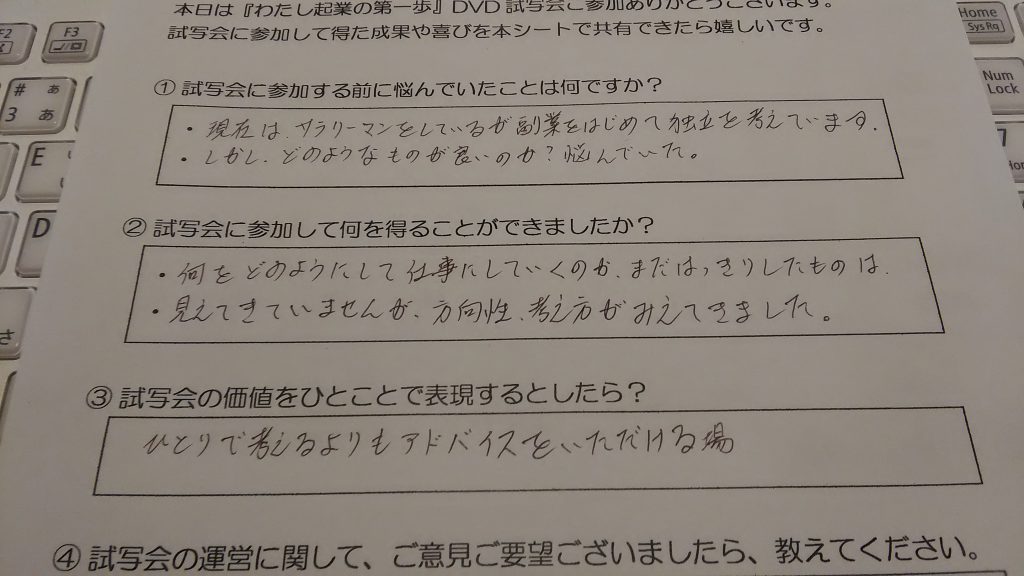 本日は『わたし起業の第一歩』DVD試写会に参加ありがとうございます。
試写会に参加して得た成果や喜びを本シートで共有できたら嬉しいです。
① 試写会に参加する前に悩んでいたことは何ですか？
・現在は、サラリーマンをしているが副業をはじめて独立を考えています。
・しかし、どのようなものが良いのか？悩んでいた。
② 試写会に参加して何を得ることができましたか？
・何をどのようにして仕事にしていくのか、まだはっきりしたものは、
・見えてきていませんが、方向性、考え方がみえてきました。
③ 試写会の価値をひとことで表現するとしたら？
ひとりで考えるよりもアドバイスをいただける場
④ 試写会の運営に関して、ご意見ご要望ございましたら、教えてください。
F2
F3
# ぁ
3 あ
E
D
さ
Home
Sys Rq
Num
Lock
7